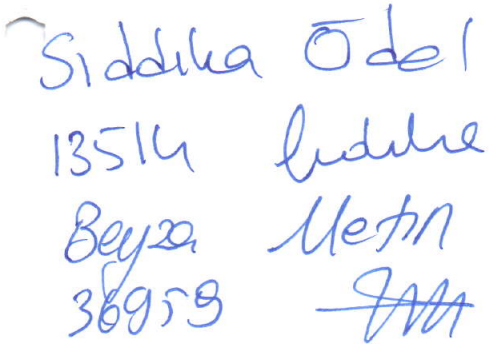 Sıddıka Ödel
13514
Beyza Metin
36959